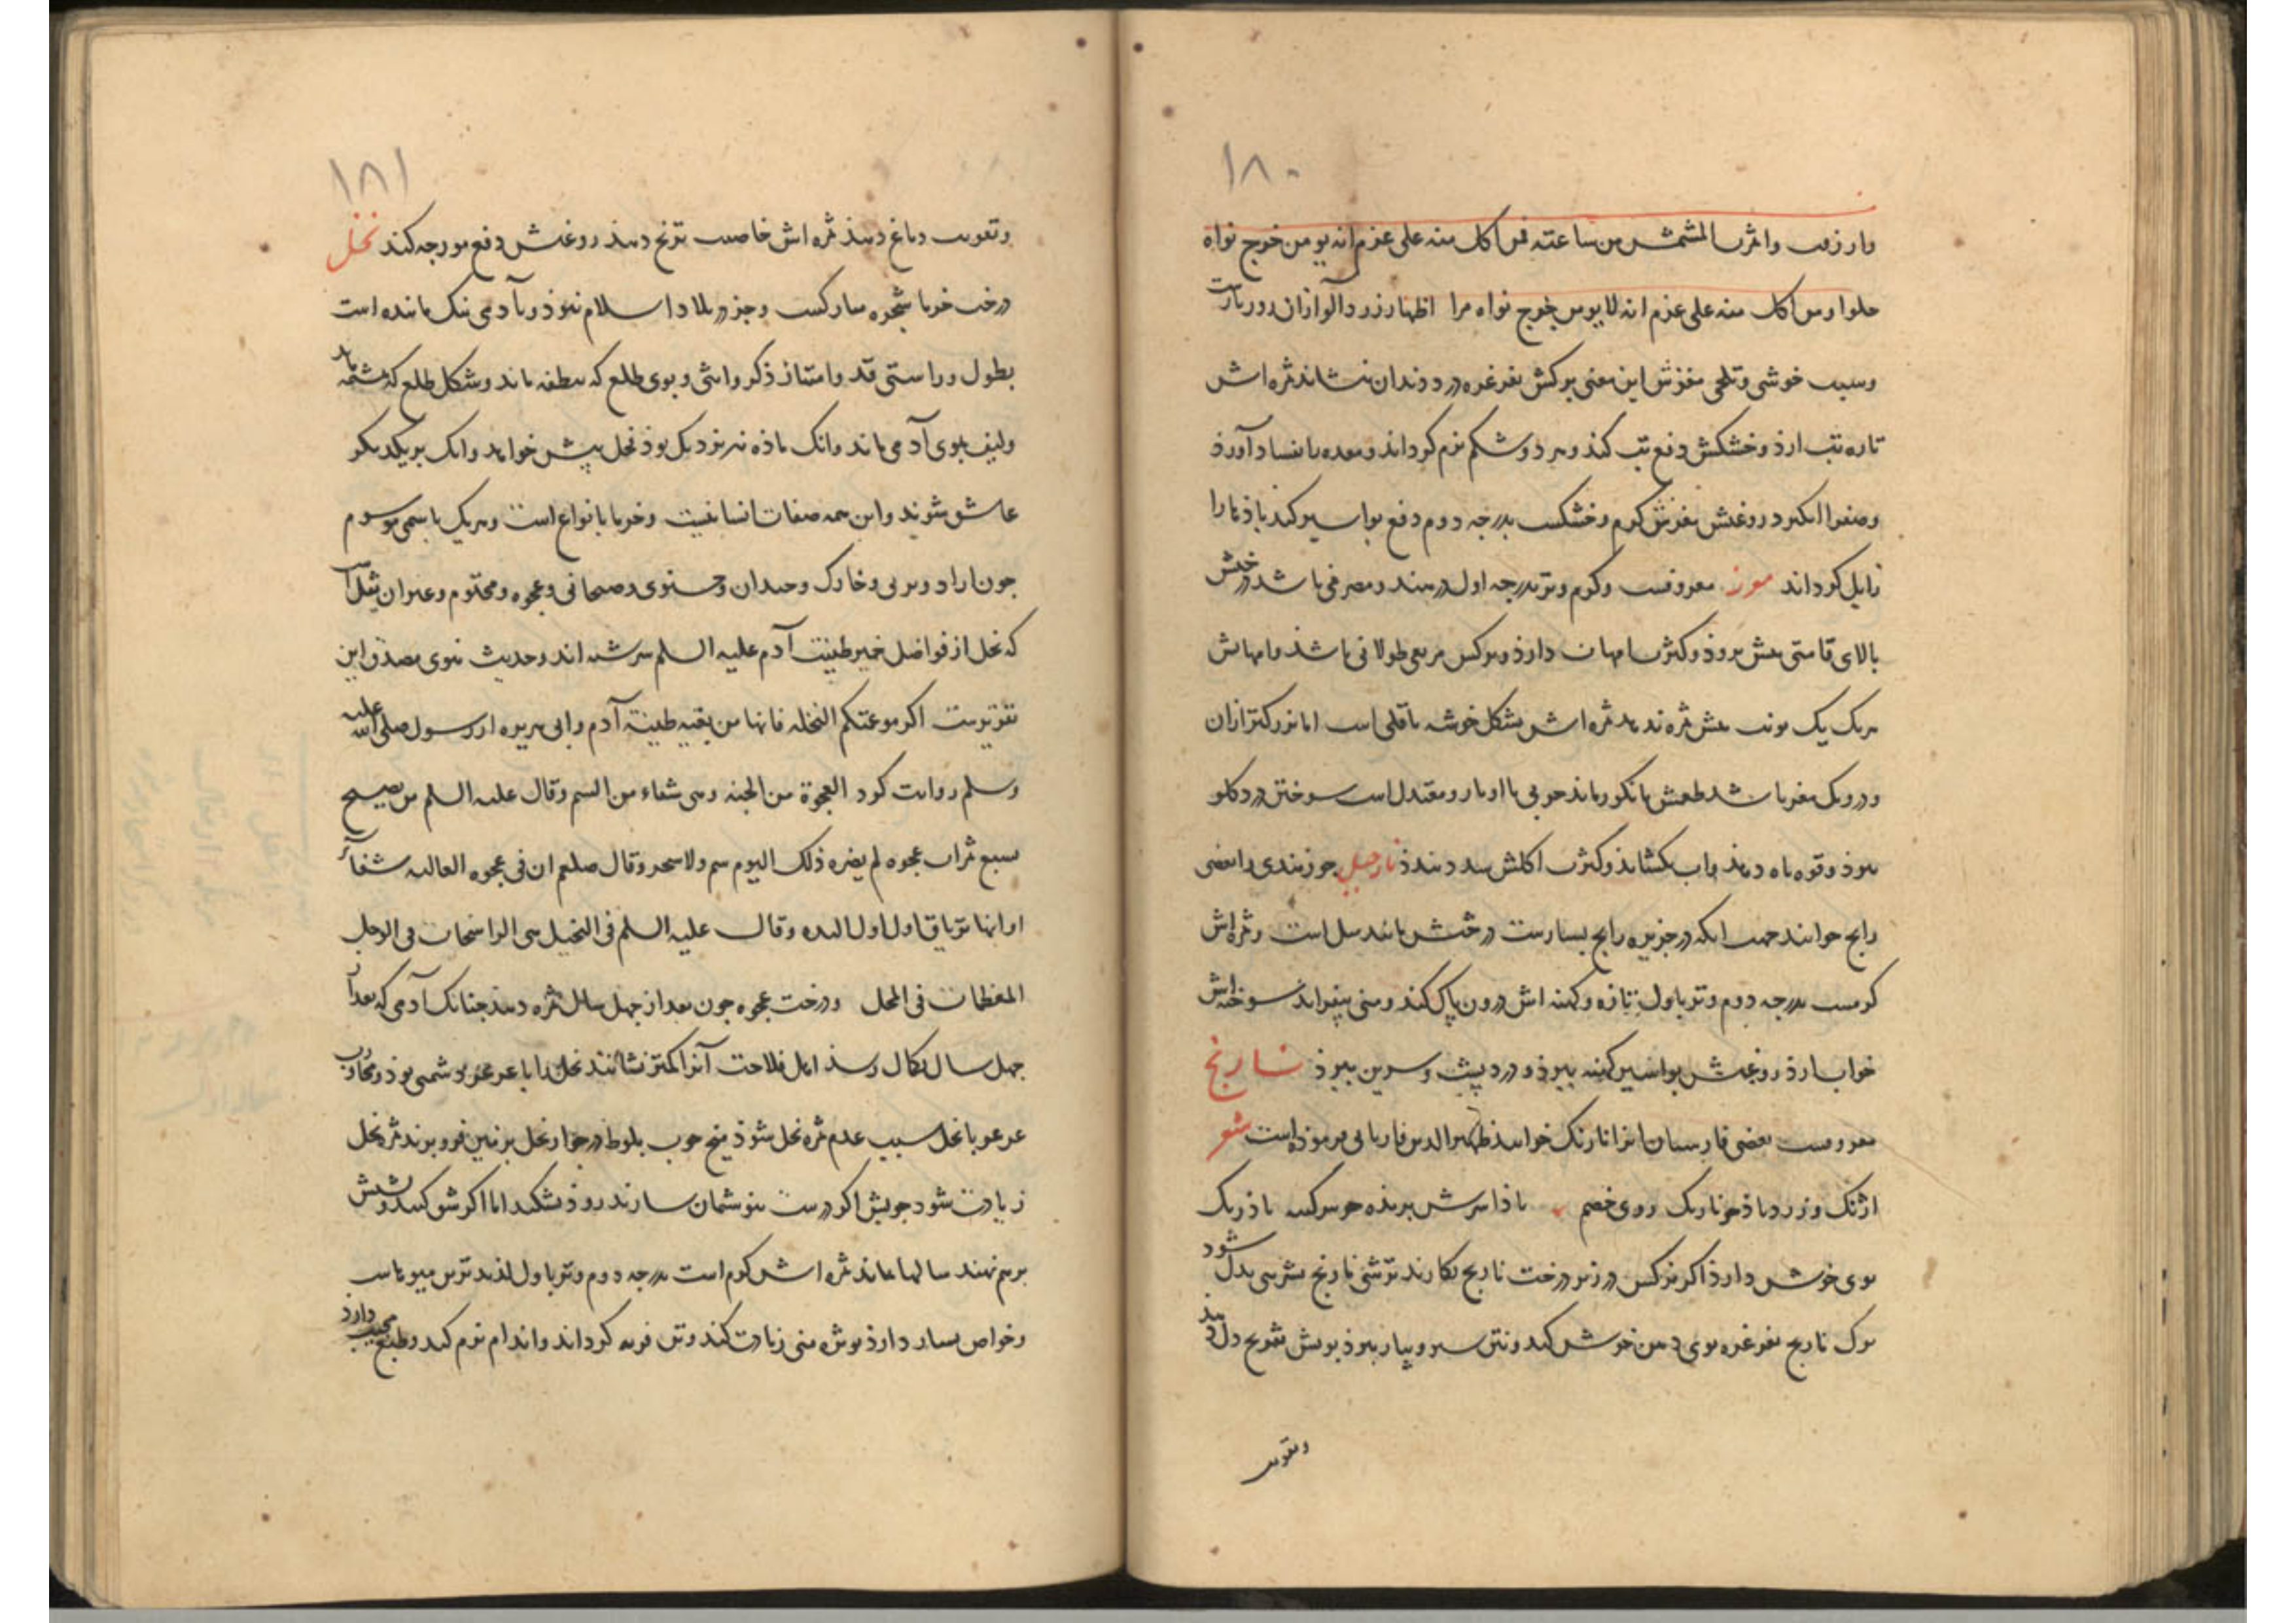 ۱۸۰
وارزقت واثرت المشمش من ساعته فمن اکل منه علی عزم انه یومن خرج نواه
حلوا ومن اکل منه علی عزم انه لا یومن خرج نواه مرا اظهار زردآلو ازان روز بازست
وسبب خوشی وتلخی مغزش این معنی برکش بغرغره درد دندان بنشاند ثمره اش
تازه تب ارذ وخشکش دفع تب کند وسرد وشکم نرم کرداند ومعده را بفساد آورذ
وصفرا انکیزد روغنش مغزش کرم وخشکست بدرجه دوم دفع بواسیر کند باذها را
زایل کرداند موز معروفست وکرم وتر بدرجه اول در هند ومصر می باشد درختش
بالای قامتی بیش نروذ وکثرت دارذ وبرکش مربعی طولانی باشذ
هریک یک نوبت بیش ثمره ندهد ثمره اش بشکل خوشه باقلی است اما بزرکتر ازان
ودرو یک مغز باشد طعمش بانکور ماند چربی با او یار ومعتدل است سوختن درد کلو
ببرذ وقوه باه دهذ واب بکشاید وکثرت اکلش سدد بندذ نارجیل جوز هندی را بعضی
رانج خوانند جهت انکه در جزیره رانج بسیارست درختش مانند نخل است وثمره اش
کرمست بدرجه دوم وتر باول تازه وکهنه اش درون پاک کند ومنی بیفزاید سوخته اش
خواب ارذ روغنش بواسیر کهنه ببرذ ودرد پشت وسرین ببرذ نارنج
معروفست بعضی فارسیان انرا نارنک خوانند ظهیرالدین فاریابی فرموذه است شعر
از ننک وزرد باذ چو نارنک روی خصم باذا سرش بریده چو سرکین باذرنک
بوی خوش دارذ اکر نرکس در زیر درخت نارنج بکارند ترشی نارنج بشیرینی بدل شود
برک نارنج بغرغره بوی دهن خوش کند ونتن سیر وپیاز ببرذ بویش تفریح دل دهد
وتقویت
۱۸۱
وتقویت دماغ دهذ ثمره اش خاصیت ترنج دهد روغنش دفع مورچه کند نخل
درخت خرما شجره مبارکست وجز در بلاد اسلام نبوذ وبآدمی نیک ماننده است
بطول وراستی قد وامتیاز ذکر وانثی وبوی طلع که بنطفه ماند وشکل طلع که بمشیمه ماند
ولیف بموی آدمی ماند وانک ماذه نر نزدیک بوذ نخل بیش خواهد وانک بر یکدیکر
عاشق شوند واین همه صفات انسانیست وخرما بانواع است وهریک باسمی موسوم
چون ازاد وبرنی وخارک وجیدان وصیحانی وعجوه ومختوم
که نخل از فواضل خمیر طینت آدم علیه السلم سرشته اند وحدیث نبوی مصدق این
تقریرست اکرموا عمتکم النخله فانها من بقیه طینة آدم وابی هریره از رسول صلی الله علیه
وسلم روایت کرد العجوة من الجنه وهی شفاء من السم وقال علیه السلم من یصبح
بسبع ثمرات عجوه لم یضره ذلک الیوم سم ولا سحر وقال صلعم ان فی عجوه العالیه شفاء
اوانها تریاق اول اول البده وقال علیه السلم فی النخیل هی الراسخات فی الوحل
المطعمات فی المحل ودرخت عجوه چون بعد از چهل سال ثمره دهد چنانک آدمی که بعد از
چهل سال بکمال رسذ اهل فلاحت آنرا کمتر نشانند نخل را با عرعر دشمنی بوذ ومجاورت
عرعر با نخل سبب عدم ثمره نخل شوذ میخ چوب بلوط در جوار نخل بر زمین فرو برند ثمره نخل
زیادت شود چوبش اکر درست بنوشمان سازند زوذ بشکند اما اکر شق کنند وشش
برهم نهند سالها بماند ثمره اش کرم است بدرجه دوم وتر باول لذیدترین میوهاست
وخواص بسیار دارذ بوش منی زیادت کند وتن فربه کرداند واندام نرم کند وطبع مجیب دارد